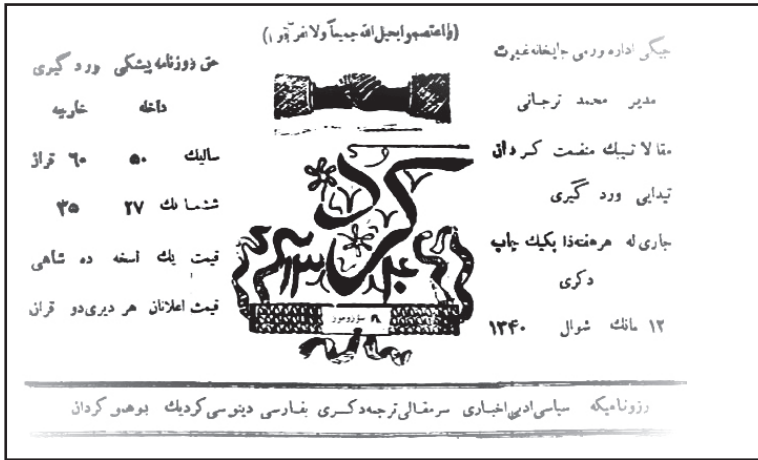 (واعتصموا بحبل الله جمیعاً ولا تفرّقوا)
جیکی اداره ورمی چاپخانه غیرت
مدیر محمد ترجانی
مقالا تیبك منفعت کردان
تیدابی ورد گیری
جاری له هر هفته‌دا یکیك چاپ
دکری
۱۲ مانك شوال ۱۳۴۰
کرد
۱۳۴۰
حق روزنامه پیشکی ورد گیری
داخله خارجه
سالیك ۵۰ ۶۰ قران
ششما نك ۲۷ ۳۵
قیمت یك نسخه ده شاهی
قیمت اعلانان هر دیری‌دو قران
رزونامیکه سیاسی ادبی اخباری سرمقالی ترجمه دکری بفارسی دینوسی کردیك بوهمو کردان